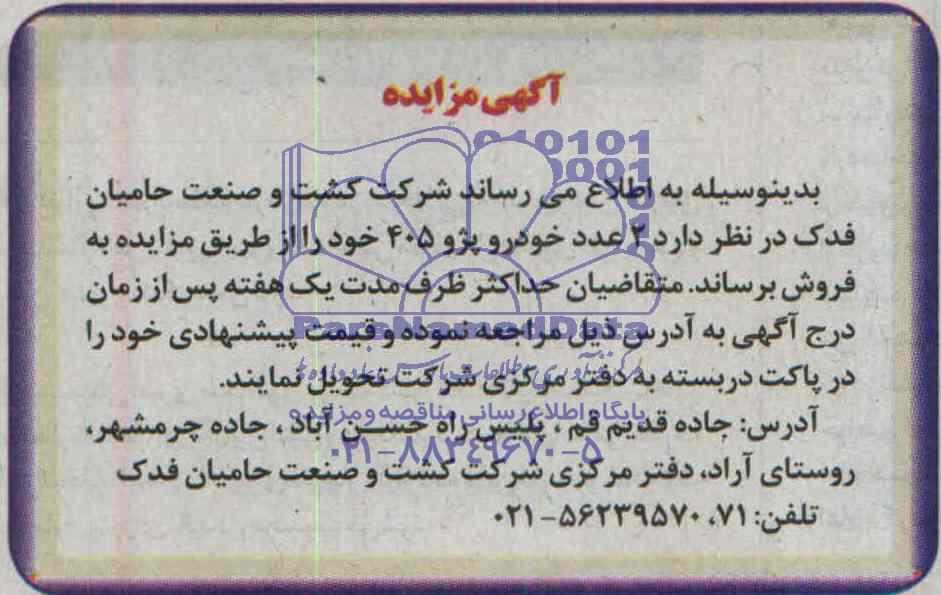 آگهی مزایده
بدینوسیله به اطلاع می رساند شرکت کشت و صنعت حامیان
فدک در نظر دارد ۲ عدد خودرو پژو ۴۰۵ خود را از طریق مزایده به
فروش برساند. متقاضیان حداکثر ظرف مدت یک هفته پس از زمان
درج آگهی به آدرس ذیل مراجعه نموده و قیمت پیشنهادی خود را
در پاکت دربسته به دفتر مرکزی شرکت تحویل نمایند.
آدرس: جاده قدیم قم، پلیس راه حسن آباد، جاده چرمشهر،
روستای آراد، دفتر مرکزی شرکت کشت و صنعت حامیان فدک
تلفن: ۷۱، ۵۶۲۳۹۵۷۰-۰۲۱
010101
0001
ParsNamadData
پایگاه اطلاع رسانی مناقصه و مزایده
۰۲۱-۸۸۳۴۹۶۷۰-۵